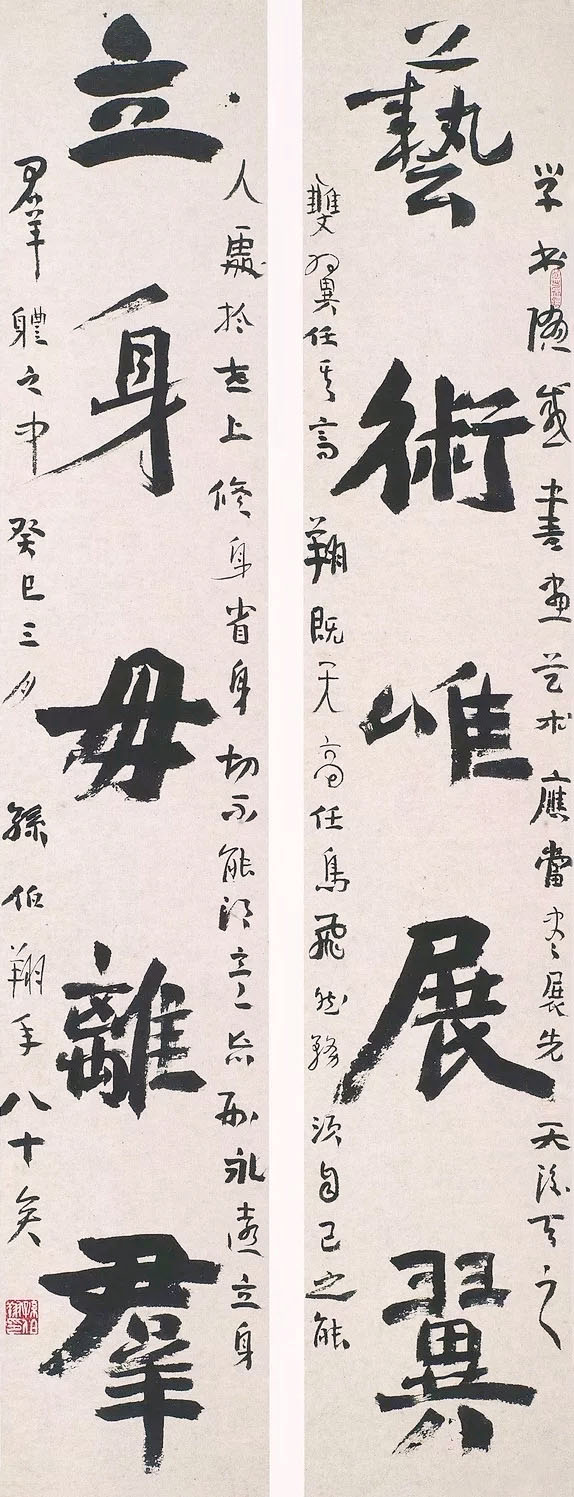 藝術唯展翼
学书作画艺术應當尽展先天後天之
雙翼任其高翔既天高任鳥飛然務須自己之能
立身毋離羣
人處於世上修身省身切不能得立忘形永遠立身
君羊體之中
癸巳三月
孫伯翔年八十矣